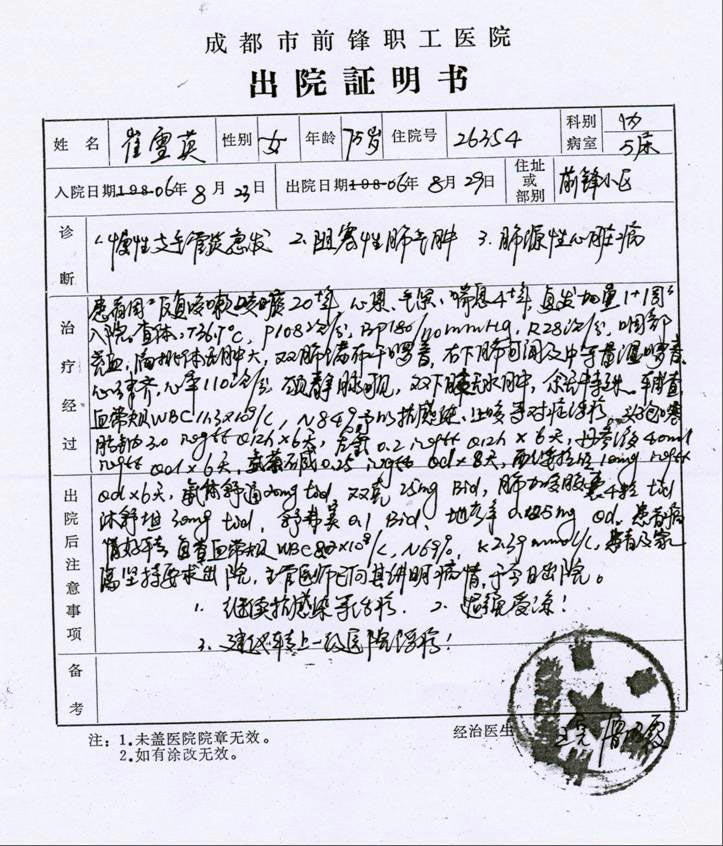 成都市前锋职工医院
出院証明书
姓名 崔雪英 性别 女 年龄 75岁 住院号 26354 科别 内 病室 5床
入院日期198-06年8月23日 出院日期198-06年8月29日 住址或部别 前锋小区
诊断 1.慢性支气管炎急发 2.阻塞性肺气肿 3.肺源性心脏病
治疗经过 患者因"反复咳嗽 20+年,心累、气累、喘息4+年,复发加重1+周"
入院。查体:T36.7℃,P108次/分,BP180/110mmHg,R28次/分,咽部
充血,扁桃体 肿大,双肺满布干啰音,右下肺可闻及中等量湿啰音,
心 齐,心率110次/分,颈静脉 ,双下肢无水肿,余无特殊。辅查:
血常规WBC 11.3×10⁹/L,N84% 予以抗感染、止咳等对症治疗。头孢
3.0 ivgtt q12h×6天, 0.2 ivgtt q12h×6天, 40ml
ivgtt qd×6天, 0.25 ivgtt qd×8天, 10mg ivgtt
qd×6天, 30mg tid, 双克25mg Bid, 肺 胶囊4粒 tid
沐舒坦30mg tid, 舒弗美0.1 Bid, 地高辛 0.125mg qd。患者病
情好转,复查血常规WBC ×10⁹/L,N69%,K 2.39mmol/L,患者及家
属坚持要求出院,主管医师已向其讲明病情,于今日出院。
出院后注意事项
1.继续抗感染等治疗. 2.避免受凉!
3.建议转上一级医院治疗!
备考
注:1.未盖医院院章无效。
2.如有涂改无效。
经治医生